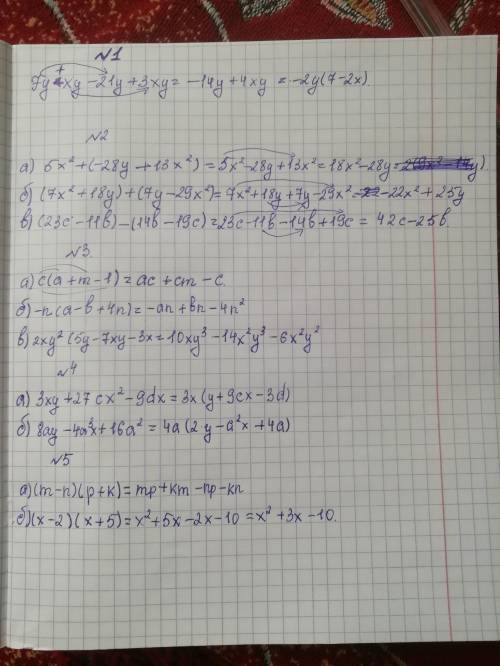 №1
7y+xy-21y+3xy=-14y+4xy=-2y(7-2x).
№2
а) 5x²+(-28y+13x²)=5x²-28y+13x²=18x²-28y=
б) (7x²+18y)+(7y-29x²)=7x²+18y+7y-29x²=-22x²+25y
в) (23c-11b)-(14b-19c)=23c-11b-14b+19c=42c-25b.
№3
а) c(a+m-1)=ac+cm-c.
б) -n(a-b+4n)=-an+bn-4n²
в) 2xy²(5y-7xy-3x=10xy³-14x²y³-6x²y²
№4
а) 3xy+27cx²-9dx=3x(y+9cx-3d)
б) 8ay-4a³x+16a²=4a(2y-a²x+4a)
№5
а) (m-n)(p+k)=mp+km-np-kn
б) (x-2)(x+5)=x²+5x-2x-10=x²+3x-10.